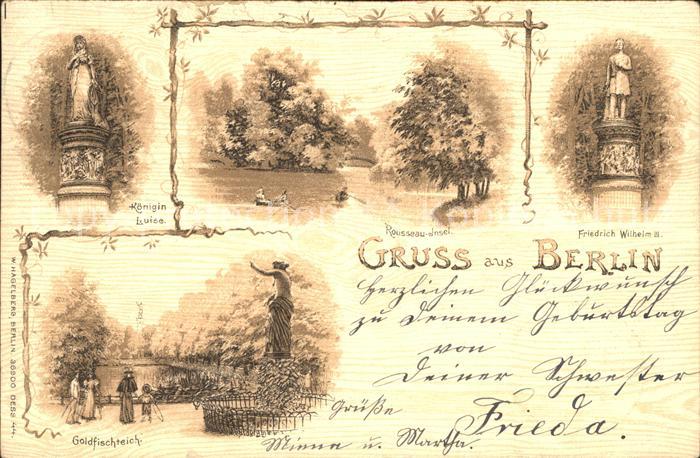 Königin
Luise.
Rousseau-Insel.
Friedrich Wilhelm III.
GRUSS aus BERLIN
Herzlichen Glückwunsch
zu Deinem Geburtstag
von
Deiner Schwester
Frieda.
Grüße
Miena u. Martha.
Goldfischteich.
W. HAGELBERG, BERLIN. 36900 DESS 44.